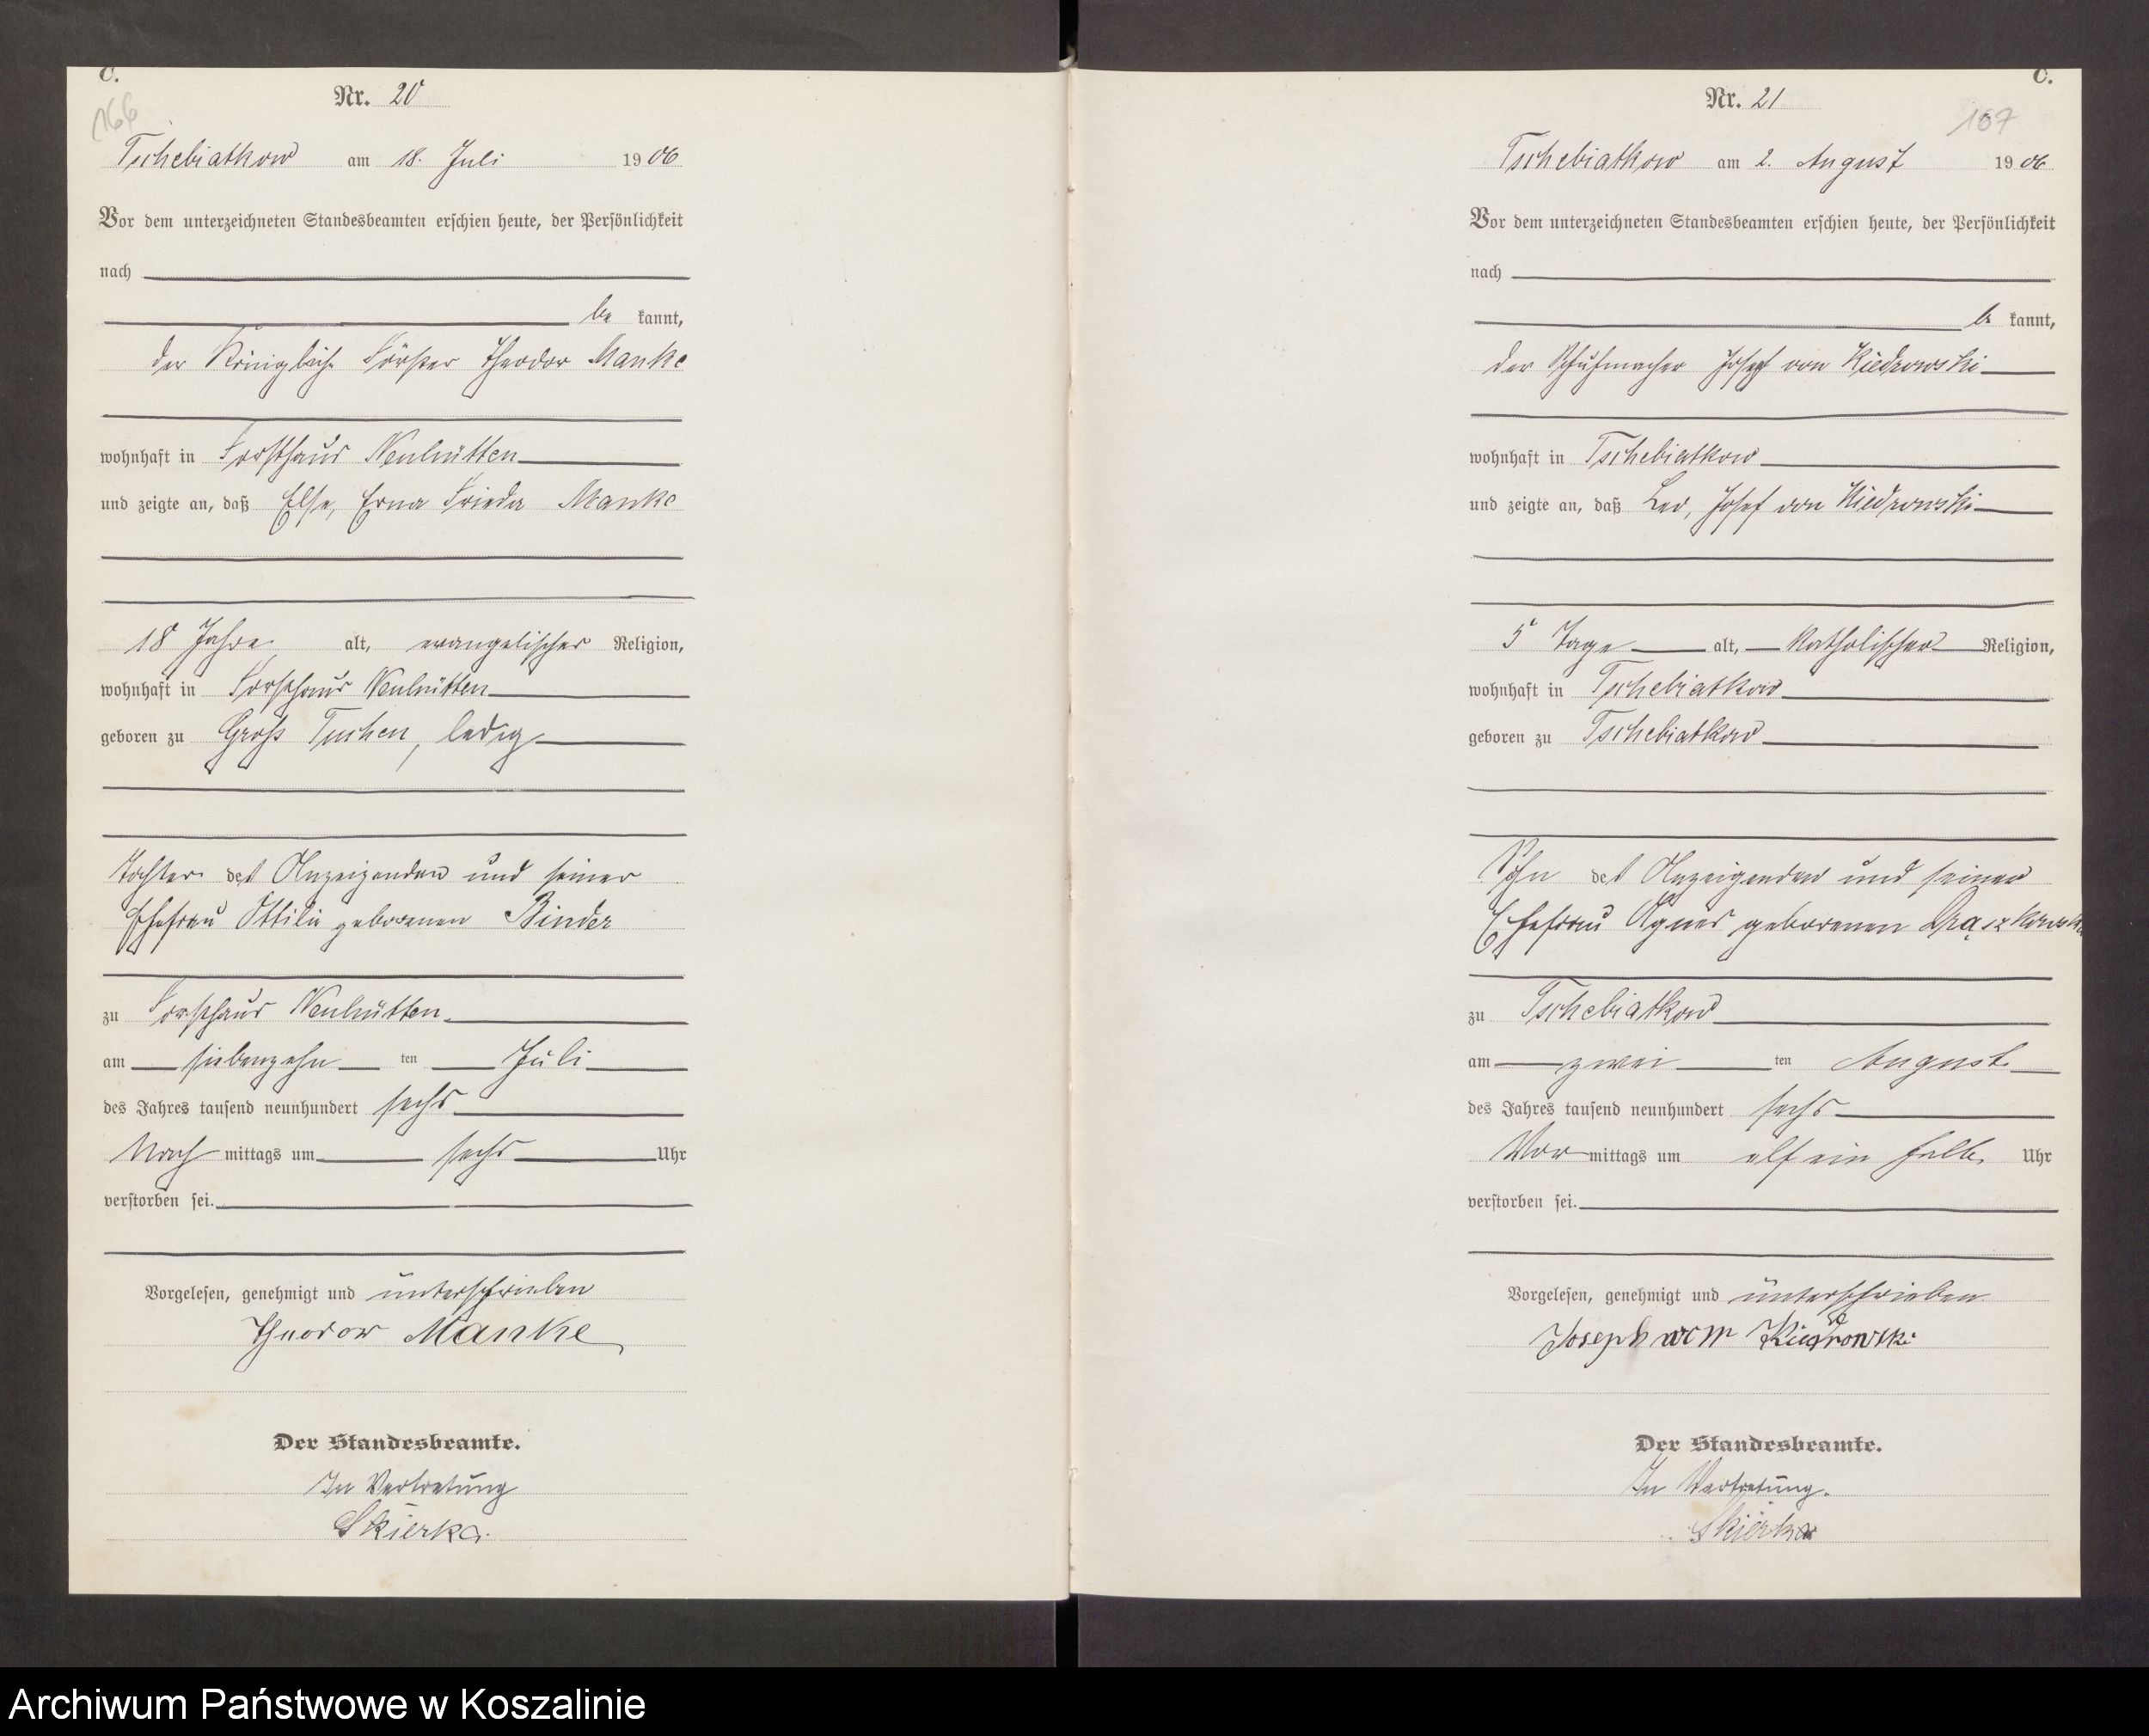 C.
166
Nr. 20
Tschebiatkow am 18. Juli 1906
Vor dem unterzeichneten Standesbeamten erschien heute, der Persönlichkeit
nach
be kannt,
der Königliche Förster Theodor Manke
wohnhaft in Forsthaus Neuhütten
und zeigte an, daß Else, Erna Frieda Manke
18 Jahre alt, evangelischer Religion,
wohnhaft in Forsthaus Neuhütten
geboren zu Groß Tuchen, ledig
Tochter des Anzeigenden und seiner
Ehefrau Ottilie geborenen Binder
zu Forsthaus Neuhütten
am siebenzehn ten Juli
des Jahres tausend neunhundert sechs
Nach mittags um sechs Uhr
verstorben sei.
Vorgelesen, genehmigt und unterschrieben
Theodor Manke
Der Standesbeamte.
In Vertretung
Skierka.
C.
167
Nr. 21
Tschebiatkow am 2. August 1906
Vor dem unterzeichneten Standesbeamten erschien heute, der Persönlichkeit
nach
be kannt,
der Schuhmacher Josef von Kiedrowski
wohnhaft in Tschebiatkow
und zeigte an, daß Leo, Josef von Kiedrowski
5 Tage alt, katholischer Religion,
wohnhaft in Tschebiatkow
geboren zu Tschebiatkow
Sohn des Anzeigenden und seiner
Ehefrau Agnes geborenen
zu Tschebiatkow
am zwei ten August
des Jahres tausend neunhundert sechs
Vor mittags um elf ein halb Uhr
verstorben sei.
Vorgelesen, genehmigt und unterschrieben
Joseph von Kiedrowski
Der Standesbeamte.
In Vertretung.
Skierka
Archiwum Państwowe w Koszalinie